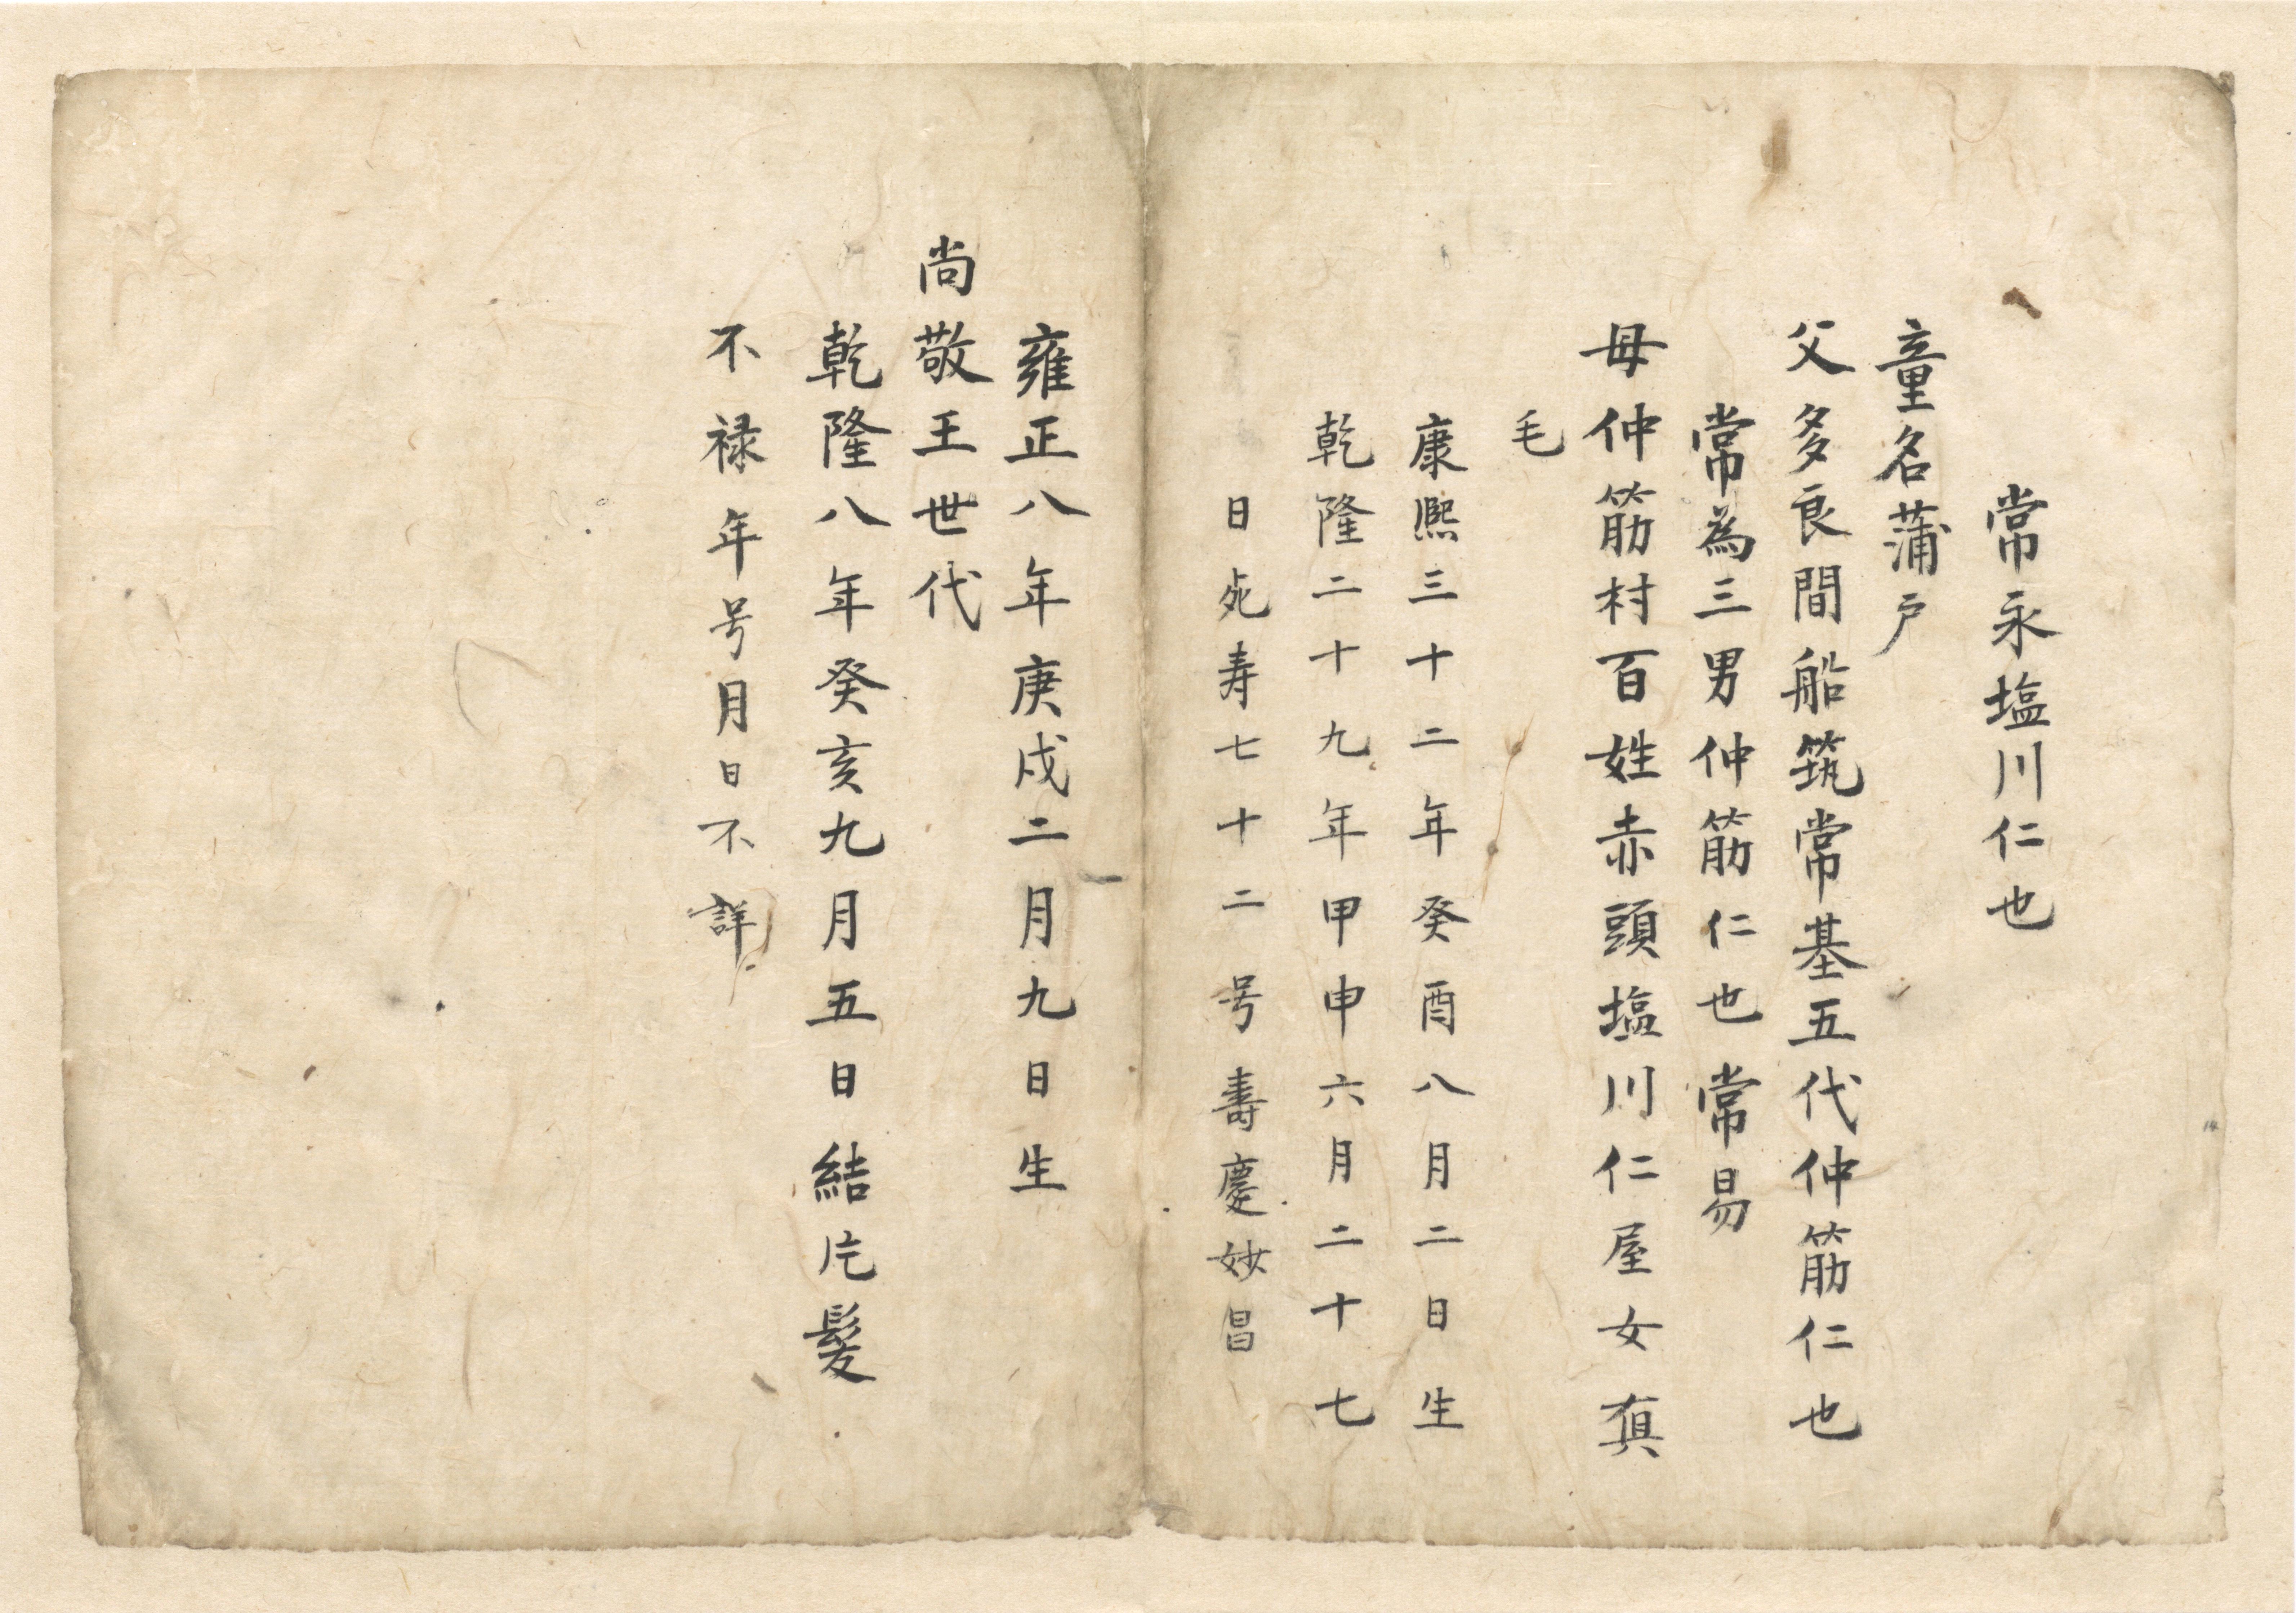 常永塩川仁也
童名蒲戸
父多良間船筑常基五代仲筋仁也
常為三男仲筋仁也常易
母仲筋村百姓赤頭塩川仁屋女真
毛
康熙三十二年癸酉八月二日生
乾隆二十九年甲申六月二十七
日死寿七十二号壽慶妙昌
雍正八年庚戌二月九日生
尚敬王世代
乾隆八年癸亥九月五日結片髪
不禄年号月日不詳